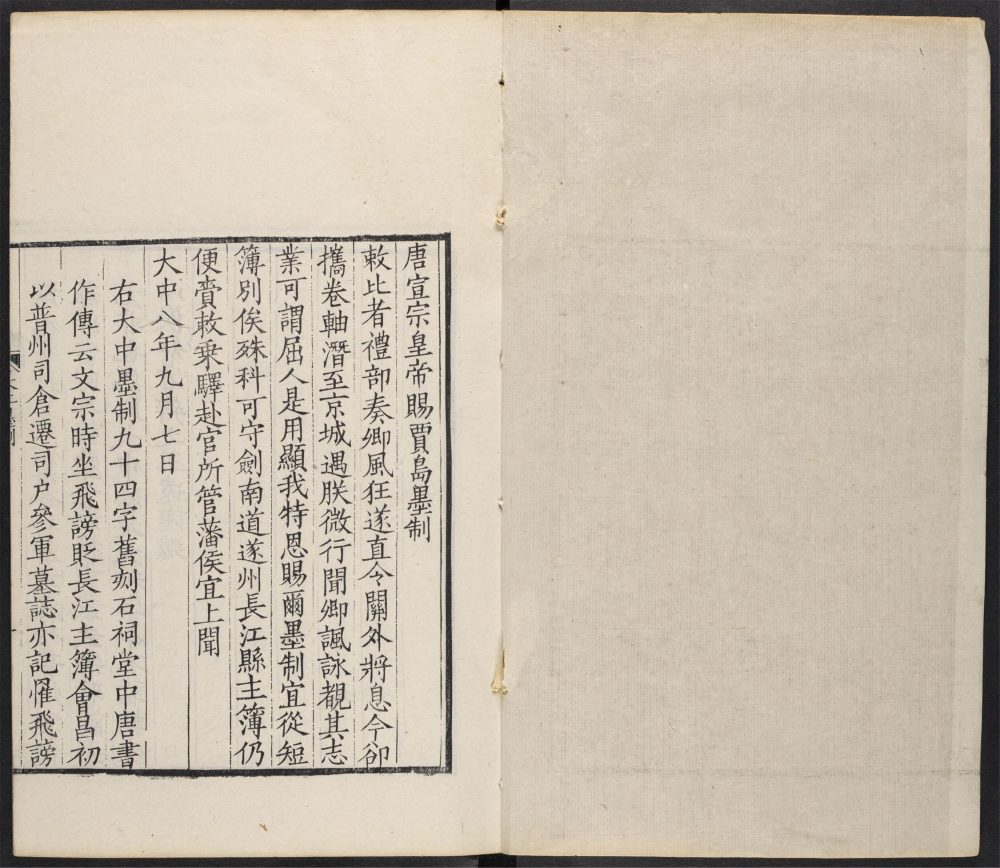 唐宣宗皇帝賜賈島墨制
敕比者禮部奏卿風狂遂直令關外將息今卻
攜卷軸潛至京城遇朕微行聞卿諷詠覩其志
業可謂屈人是用顯我特恩賜爾墨制宜從短
簿別俟殊科可守劍南道遂州長江縣主簿仍
便賫敕乘驛赴官所管藩侯宜上聞
大中八年九月七日
右大中墨制九十四字舊刻石祠堂中唐書
作傳云文宗時坐飛謗貶長江主簿會昌初
以普州司倉遷司户參軍墓誌亦記罹飛謗